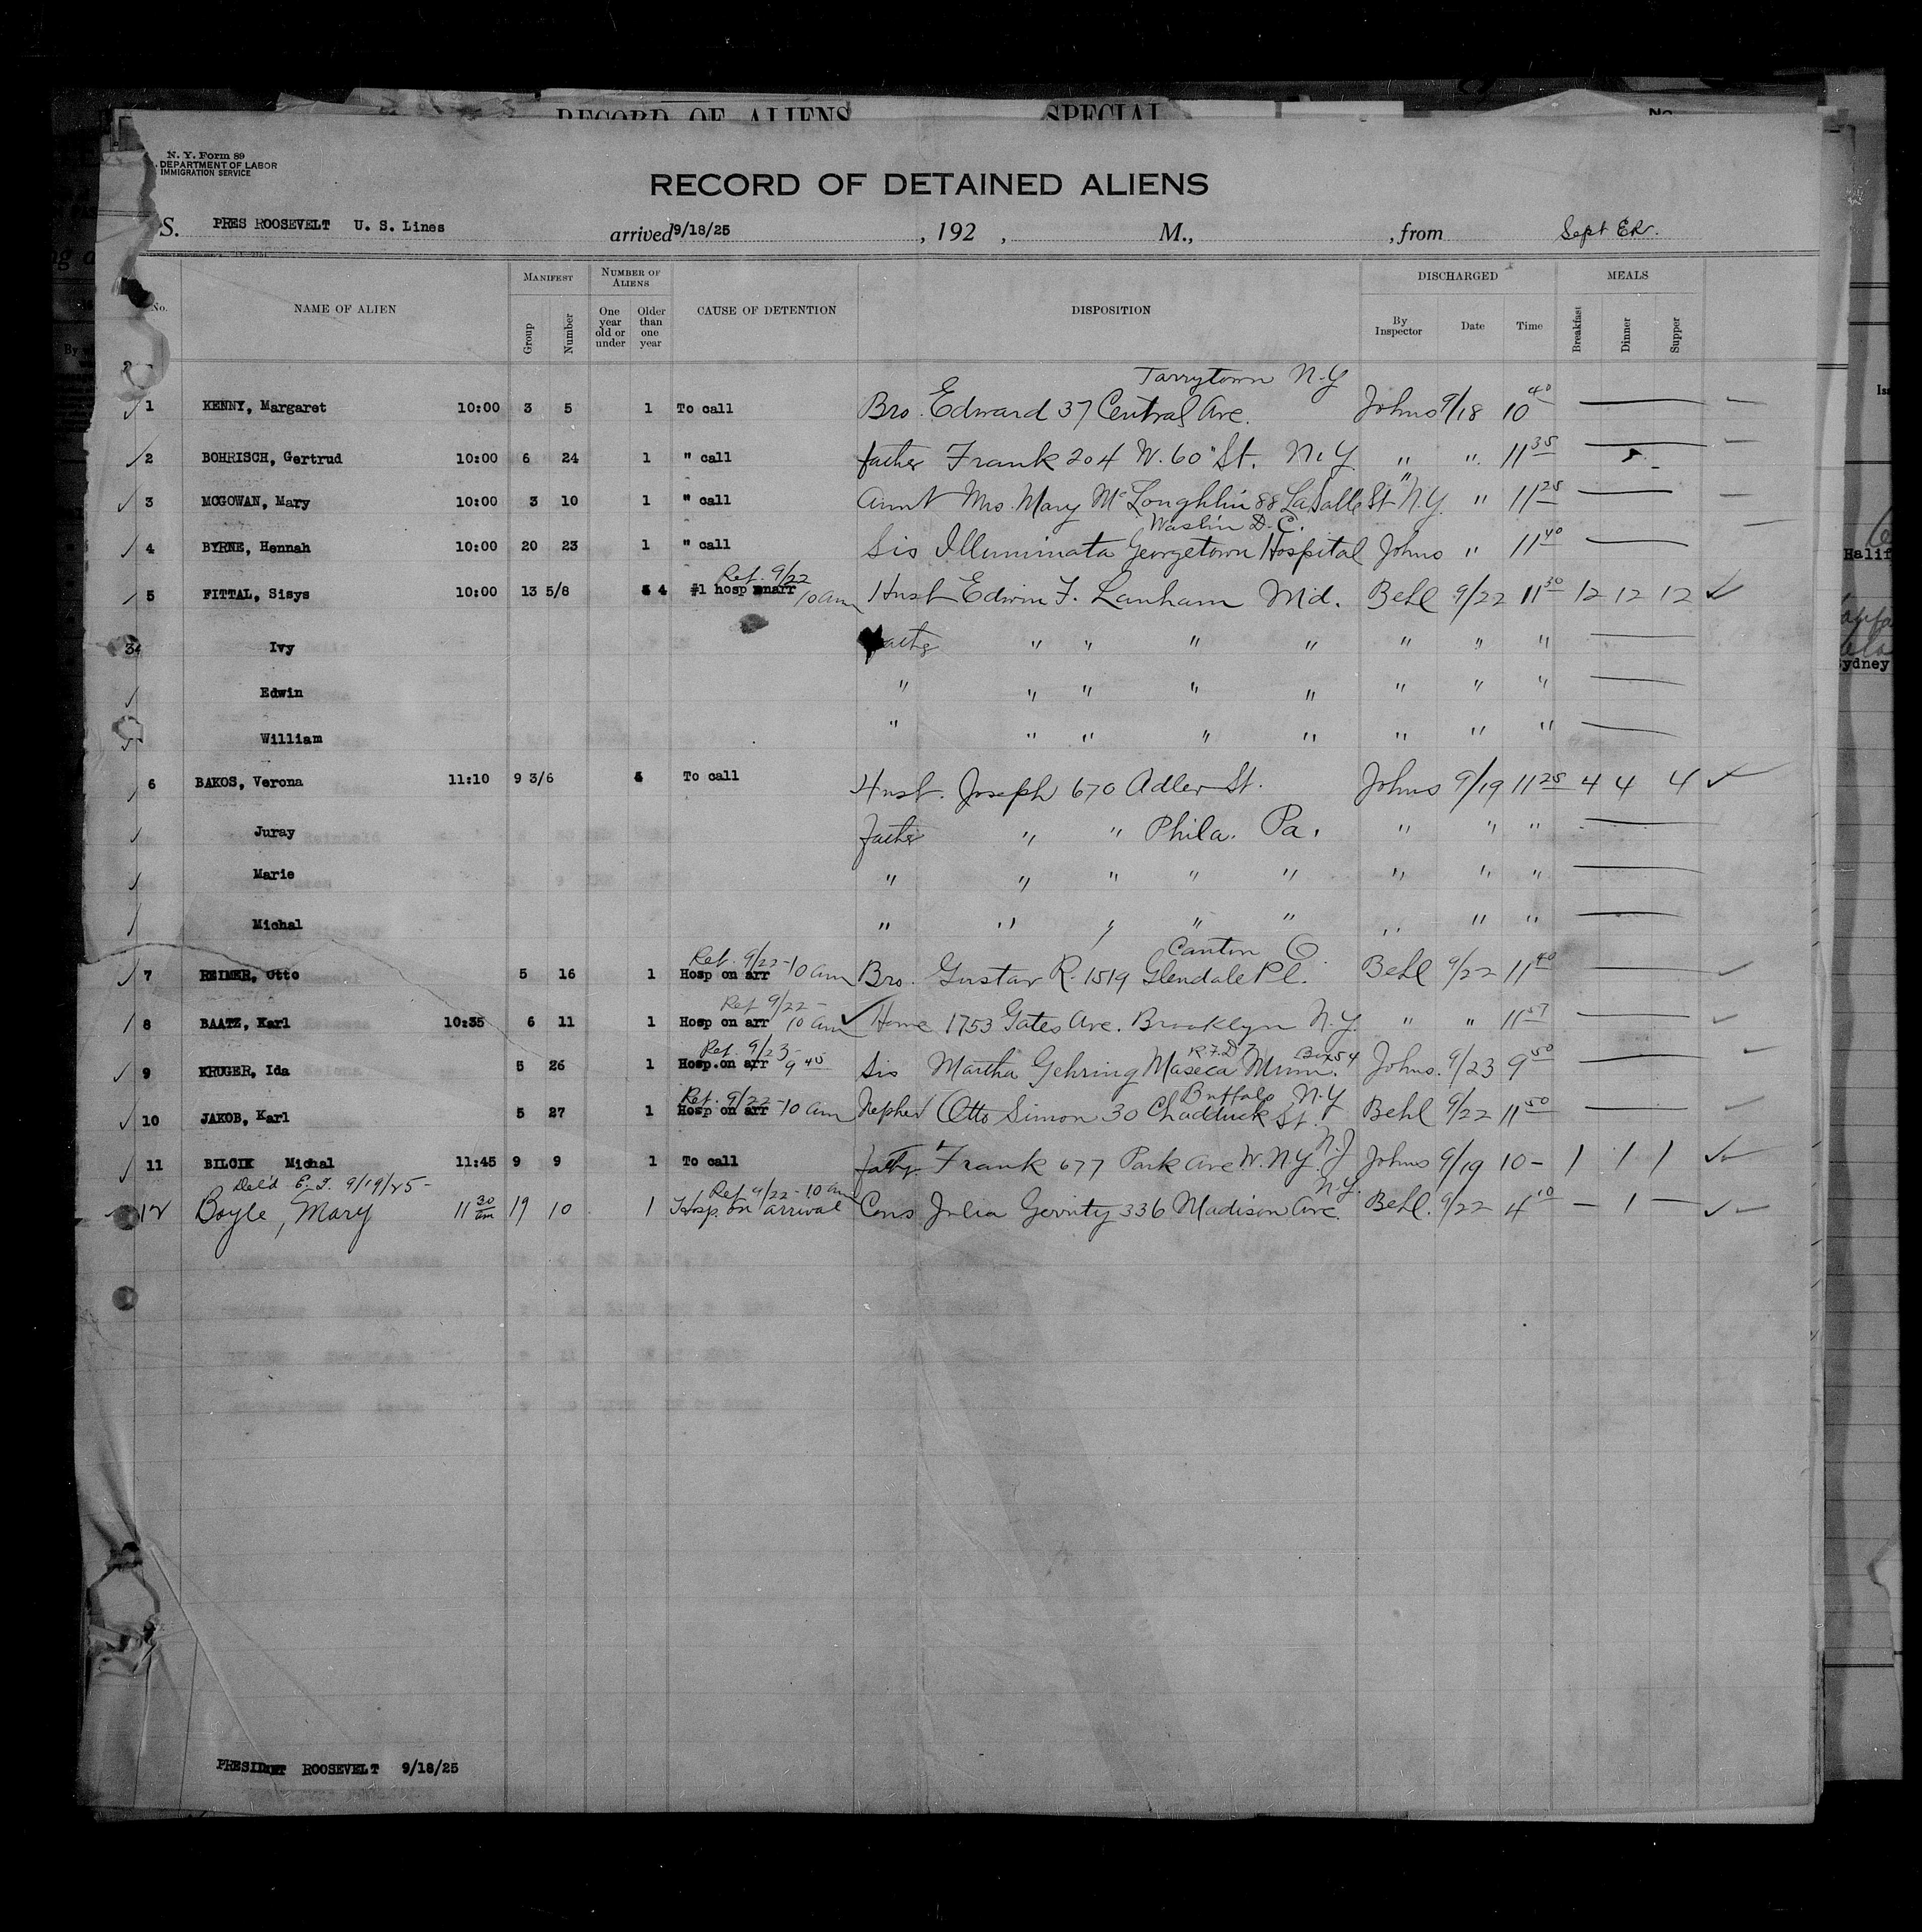 RECORD OF ALIENS SPECIAL
N. Y. Form 89
DEPARTMENT OF LABOR
IMMIGRATION SERVICE
RECORD OF DETAINED ALIENS
S. PRES ROOSEVELT U. S. Lines arrived 9/18/25 , 192 , M., , from Sept ER.
No. NAME OF ALIEN MANIFEST Group Number NUMBER OF ALIENS One year old or under Older than one year CAUSE OF DETENTION DISPOSITION DISCHARGED By Inspector Date Time MEALS Breakfast Dinner Supper
Tarrytown N.Y
1 KENNY, Margaret 10:00 3 5 1 To call Bro. Edward 37 Central Ave. Johns 9/18 10 40 —
2 BOHRISCH, Gertrud 10:00 6 24 1 " call father Frank 204 W. 60" St. N.Y " " 11 35 —
3 MCGOWAN, Mary 10:00 3 10 1 " call Aunt Mrs. Mary McLoughlin 88 LaSalle St N.Y. " " 11 25 —
Washin D.C.
4 BYRNE, Hannah 10:00 20 23 1 " call Sis Illuminata Georgetown Hospital Johns " 11 40 —
Ret. 9/22
5 FITTAL, Sisys 10:00 13 5/8 4 #1 hosp onarr 10 am Husb Edwin F. Lanham Md. Behl 9/22 11 30 12 12 12 ✓
Ivy father " " " " " " " —
Edwin " " " " " " " " —
William " " " " " " " " —
6 BAKOS, Verona 11:10 9 3/6 4 To call Husb. Joseph 670 Adler St. Johns 9/19 11 25 4 4 4 ✓
Juray father " " Phila. Pa. " " " —
Marie " " " " " " " " —
Michal " " " " " " " " —
Ret. 9/22-10 am Canton O.
7 REIMER, Otto 5 16 1 Hosp on arr Bro. Gustav R. 1519 Glendale Pl. Behl 9/22 11 40 —
Ret 9/22-
8 BAATZ, Karl 10:35 6 11 1 Hosp on arr 10 am ✓ Home 1753 Gates Ave. Brooklyn N.Y. " " 11 57 —
Ret. 9/23- R.F.D 7 Box 54
9 KRUGER, Ida 5 26 1 Hosp.on arr 9 45 Sis Martha Gehring Maseca Minn. Johns. 9/23 9 50 —
Ret. 9/22-10 am Buffalo N.Y
10 JAKOB, Karl 5 27 1 Hosp on arr Nephew Otto Simon 30 Chadduck St. Behl 9/22 11 50 —
11 BILCIK Michal 11:45 9 9 1 To call father Frank 677 Park Ave W. N.Y. N.J Johns 9/19 10- 1 1 1 ✓
Del'd E.I. 9/19/25- Ret 9/22-10 am N.Y.
12 Boyle, Mary 11 30 am 19 10 1 Hosp. on arrival Cous Julia Gerrity 336 Madison Ave. Behl. 9/22 4 10 — 1 — ✓
PRESIDENT ROOSEVELT 9/18/25
Halif
ydney